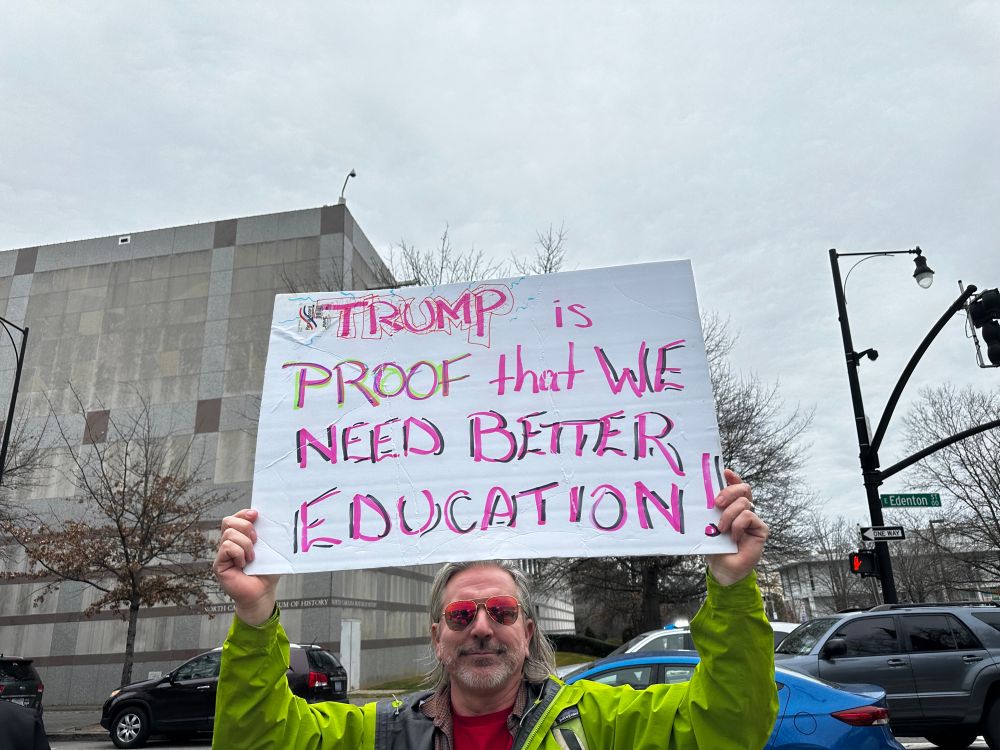 TRUMP is
PROOF that WE
NEED BETTER
EDUCATION!
E Edenton ST
ONE WAY
NORTH CAROLINA MUSEUM OF HISTORY